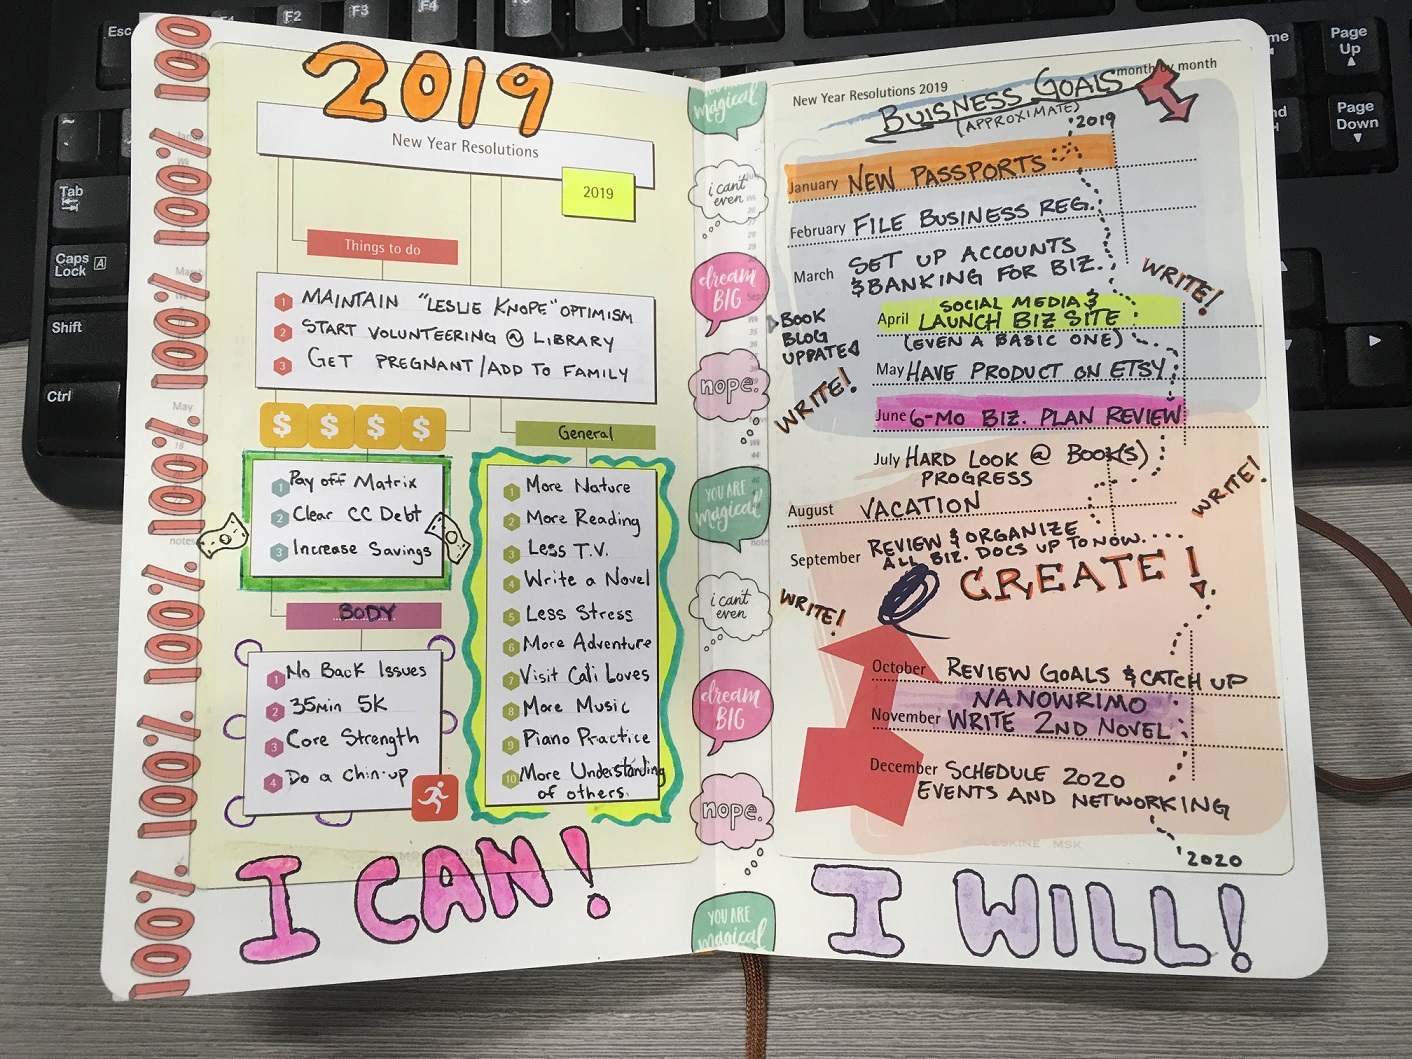 Esc
F1
F2
F3
F4
Tab
Caps Lock A
Shift
Ctrl
Page Up
Page Down
100%
100%
100%
100%
100%
100%
100%
2019
New Year Resolutions
2019
Things to do
1 MAINTAIN "LESLIE KNOPE" OPTIMISM
2 START VOLUNTEERING @ LIBRARY
3 GET PREGNANT/ADD TO FAMILY
$ $ $ $
1 Pay off Matrix
2 Clear CC Debt
3 Increase Savings
BODY
1 No Back Issues
2 35min 5K
3 Core Strength
4 Do a chin-up
General
1 More Nature
2 More Reading
3 Less T.V.
4 Write a Novel
5 Less Stress
6 More Adventure
7 Visit Cali Loves
8 More Music
9 Piano Practice
10 More Understanding
of others.
I CAN!
magical
i can't
even
dream
BIG
nope.
YOU ARE
magical
i can't
even
dream
BIG
nope.
YOU ARE
magical
New Year Resolutions 2019
month by month
BUISNESS GOALS
(APPROXIMATE)
2019
January NEW PASSPORTS
February FILE BUSINESS REG.
March SET UP ACCOUNTS
& BANKING FOR BIZ.
WRITE!
SOCIAL MEDIA &
April LAUNCH BIZ SITE
(EVEN A BASIC ONE)
BOOK
BLOG
UPDATE
WRITE!
May HAVE PRODUCT ON ETSY
June 6-MO BIZ. PLAN REVIEW
July HARD LOOK @ BOOK(S)
PROGRESS
WRITE!
August VACATION
September REVIEW & ORGANIZE
ALL BIZ. DOCS UP TO NOW....
CREATE!
WRITE!
October REVIEW GOALS & CATCH UP
NANOWRIMO
November WRITE 2ND NOVEL
December SCHEDULE 2020
EVENTS AND NETWORKING
MOLESKINE MSK
2020
I WILL!